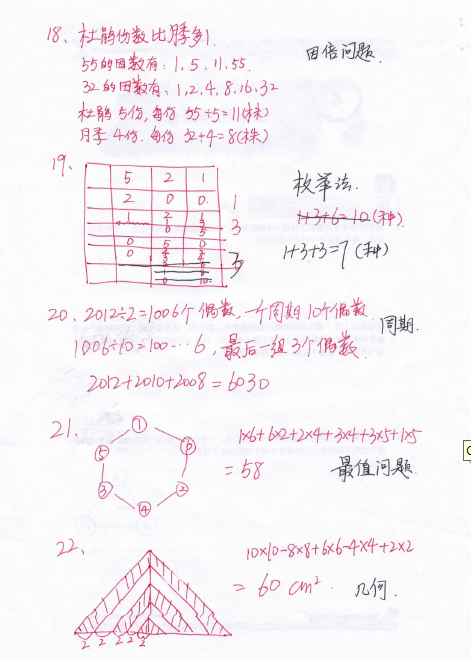 18、杜鹃份数比月季多1.
因倍问题.
55的因数有:1,5,11,55.
32的因数有,1,2,4,8,16,32
杜鹃5份,每份 55÷5=11(株)
月季4份,每份 32÷4=8(株)
19、
5 2 1
2 0 0 1
1 2 1
3
0 5 0
3
枚举法.
1+3+6=10(种)
1+3+3=7(种)
20、2012÷2=1006个偶数,一个周期10个偶数.
周期.
1006÷10=100…6,最后一组3个偶数.
2012+2010+2008=6030
21、
1×6+6×2+2×4+3×4+3×5+1×5
=58
最值问题.
① ⑥ ② ④ ③ ⑤
22、
10×10-8×8+6×6-4×4+2×2
=60 cm².
几何.
2 2 2 2 2